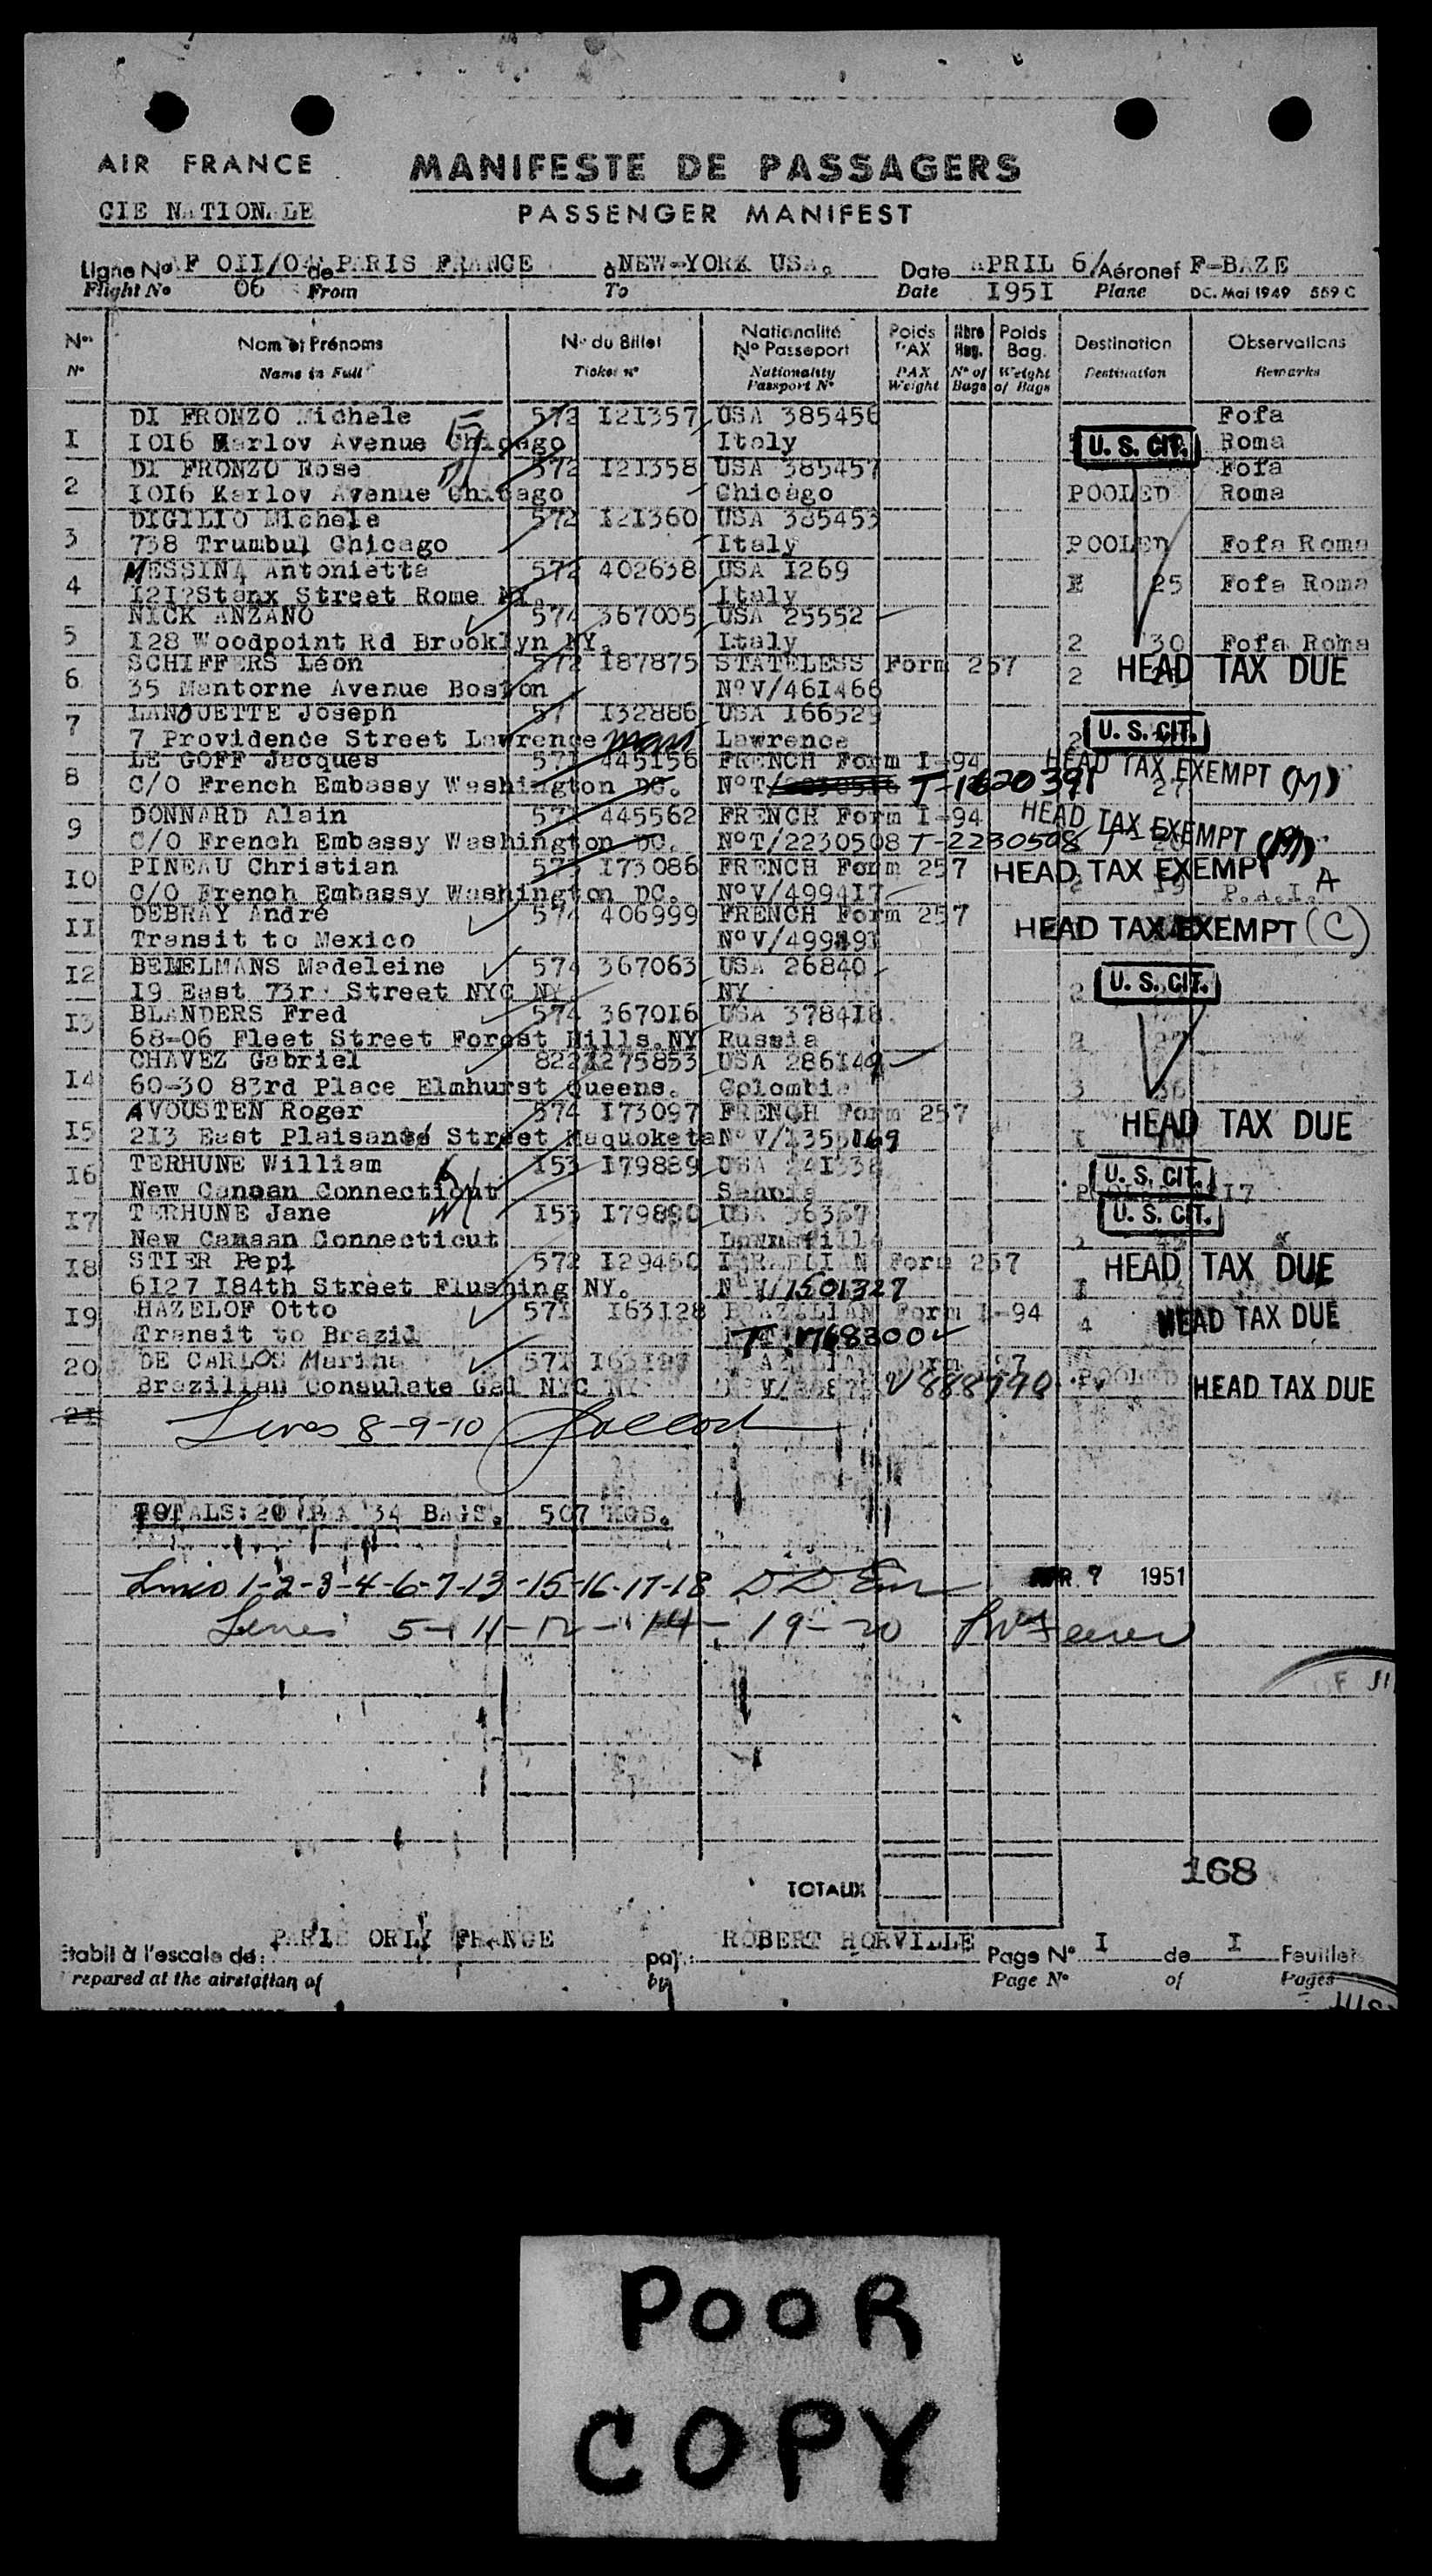 AIR FRANCE
MANIFESTE DE PASSAGERS
CIE NATIONALE
PASSENGER MANIFEST
Ligne No AF OII/04 de PARIS FRANCE à NEW-YORK USA. Date APRIL 6/ Aéronef F-BAZE
Flight No 06 From To Date I95I Plane DC. Mai 1949 559 C
Nos Nom et Prénoms No du Billet Nationalité No Passeport Poids PAX Nbre Bag. Poids Bag. Destination Observations
No Name in Full Ticket no Nationality Passport No PAX Weight No of Bags Weight of Bags Destination Remarks
I DI FRONZO Michele 572 I2I357 USA 385456 Fofa
I0I6 Karlov Avenue Chicago Italy U. S. CIT. Roma
2 DI FRONZO Rose 572 I2I358 USA 385457 Fofa
I0I6 Karlov Avenue Chicago Chicago POOLED Roma
3 DIGILIO Michele 572 I2I360 USA 385453
738 Trumbul Chicago Italy POOLED Fofa Roma
4 MESSINA Antonietta 572 402638 USA I269 25 Fofa Roma
Street Rome NY. Italy
5 NICK ANZANO 574 367005 USA 25552
I28 Woodpoint Rd Brooklyn NY. Italy 2 30 Fofa Roma
6 SCHIFFERS Léon 572 I87875 STATELESS Form 257 HEAD TAX DUE
35 Mantorne Avenue Boston NoV/46I466 2
7 LANOUETTE Joseph 57 I32886 USA I66529 U. S. CIT.
7 Providence Street Lawrence mass Lawrence 2
8 LE GOFF Jacques 571 445I56 FRENCH Form I-94 HEAD TAX EXEMPT (M)
C/O French Embassy Washington DC. NoT/ T-1620391 27
9 DONNARD Alain 571 445562 FRENCH Form I-94 HEAD TAX EXEMPT (M)
C/O French Embassy Washington DC. NoT/2230508 T-2230508
I0 PINEAU Christian 575 I73086 FRENCH Form 257 HEAD TAX EXEMPT A
C/O French Embassy Washington DC. NoV/4994I7 P.d.I.
II DEBRAY André 574 406999 FRENCH Form 257 HEAD TAX EXEMPT (C)
Transit to Mexico NoV/499891
I2 BEMELMANS Madeleine 574 367063 USA 26840 U. S. CIT.
I9 East 73r Street NYC NY NY 2
I3 BLANDERS Fred 574 3670I6 USA 3784I8
68-06 Fleet Street Forest Hills.NY Russia 2
I4 CHAVEZ Gabriel 822 I275853 USA 286I49
60-30 83rd Place Elmhurst Queens. Colombia 3 36
I5 AVOUSTEN Roger 574 I73097 FRENCH Form 257 HEAD TAX DUE
2I3 East Plaisante Street Maquoketa NoV/I355169 I
I6 TERHUNE William I53 I79889 USA U. S. CIT.
New Canaan Connecticut I7
I7 TERHUNE Jane I53 I79890 USA 36357 U. S. CIT.
New Canaan Connecticut
I8 STIER Pepi 572 I29450 ISRAELIAN Form 257 HEAD TAX DUE
6I27 I84th Street Flushing NY. NoV/1501327 I
I9 HAZELOF Otto 57I I63I28 BRAZILIAN Form I-94 HEAD TAX DUE
Transit to Brazil T 1768300 4
20 DE CARLOS Marina 57I
Brazilian Consulate Gal NYC NY V 888990 POOLED HEAD TAX DUE
21 Lines 8-9-10
TOTALS: 20 PAX 34 BAGS. 507 KGS.
Lines 1-2-3-4-6-7-13-15-16-17-18 APR 7 1951
Lines 5-11-12-14-19-20
168
TOTAUX
Etabli à l'escale de: PARIS ORLY FRANCE par: ROBERT HORVILLE Page No I de I Feuillets
Prepared at the airstation of by Page No of Pages
POOR
COPY